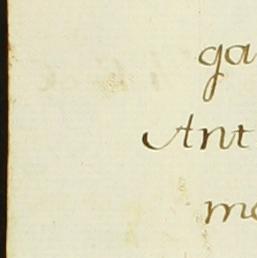 ga
Ant
me